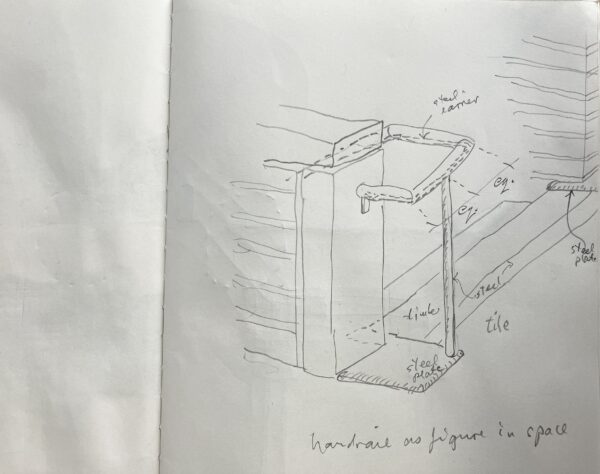 steel
corner
eq.
eq.
steel
plate
steel
timber
tile
steel
plate
handrail as figure in space